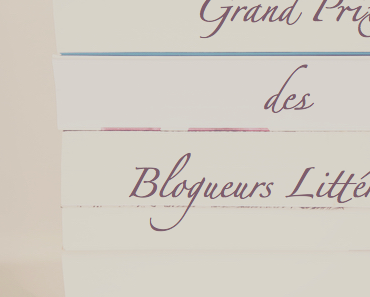 Grand Prix
des
Blogueurs Litté